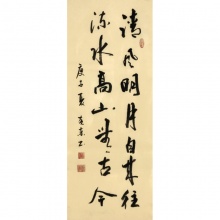 清风明月自来往
流水高山无古今
庚子夏